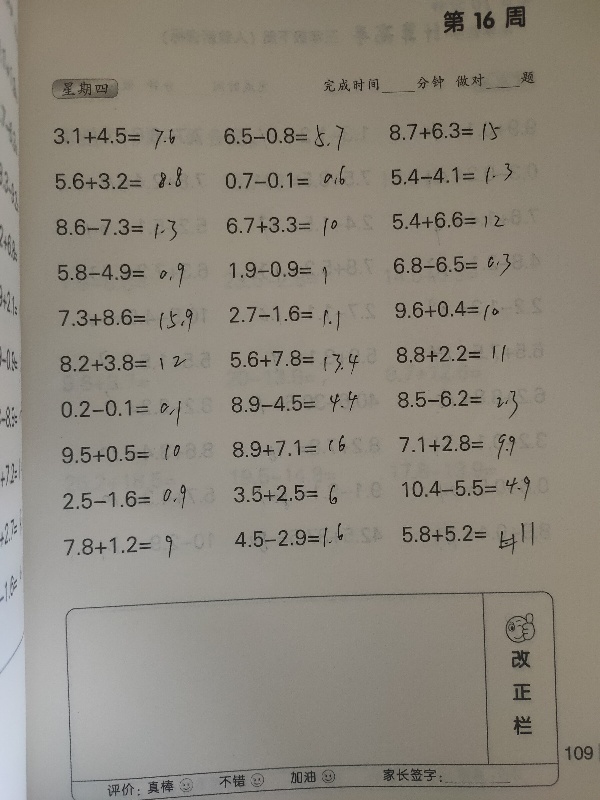 第 16 周
星期四 完成时间____分钟 做对____题
3.1+4.5= 7.6 6.5−0.8= 5.7 8.7+6.3= 15
5.6+3.2= 8.8 0.7−0.1= 0.6 5.4−4.1= 1.3
8.6−7.3= 1.3 6.7+3.3= 10 5.4+6.6= 12
5.8−4.9= 0.9 1.9−0.9= 1 6.8−6.5= 0.3
7.3+8.6= 15.9 2.7−1.6= 1.1 9.6+0.4= 10
8.2+3.8= 12 5.6+7.8= 13.4 8.8+2.2= 11
0.2−0.1= 0.1 8.9−4.5= 4.4 8.5−6.2= 2.3
9.5+0.5= 10 8.9+7.1= 16 7.1+2.8= 9.9
2.5−1.6= 0.9 3.5+2.5= 6 10.4−5.5= 4.9
7.8+1.2= 9 4.5−2.9= 1.6 5.8+5.2= 11
改正栏
109
评价：真棒 不错 加油 家长签字：